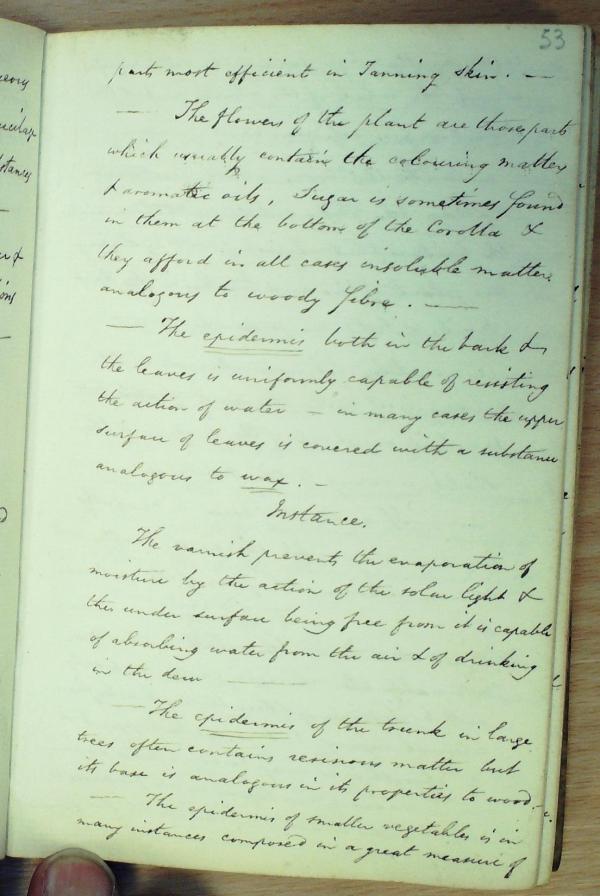 53
parts most efficient in Tanning Skin. —
— The flowers of the plant are those parts
which usually contain the colouring matters
& aromatic oils, Sugar is sometimes found
in them at the bottom of the Corolla &
they afford in all cases insoluble matter
analogous to woody fibre. —
— The epidermis both in the bark &
the leaves is uniformly capable of resisting
the action of water — in many cases the upper
surface of leaves is covered with a substance
analogous to wax. —
Instance.
The varnish prevents the evaporation of
moisture by the action of the solar light &
the under surface being free from it is capable
of absorbing water from the air & of drinking
in the dew —
— The epidermis of the trunk in large
trees often contains resinous matter but
its base is analogous in its properties to wood —
— The epidermis of smaller vegetables is in
many instances composed in a great measure of